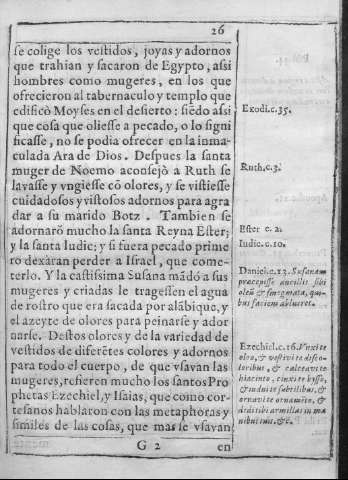 26
se colige los vestidos, joyas y adornos
que trahian y sacaron de Egypto, assi
hombres como mugeres, en los que
ofrecieron al tabernaculo y templo que
edificò Moyses en el desierto: siẽdo assi
que cosa que oliesse a pecado, o lo signi
ficasse, no se podia ofrecer en la inma-
culada Ara de Dios. Despues la santa
muger de Noemo aconsejò a Ruth se
lavasse y vngiesse cõ olores, y se vistiesse
cuidadosos y vistosos adornos para agra
dar a su marido Botz. Tambien se
adornarõ mucho la santa Reyna Ester;
y la santa Iudic; y si fuera pecado prime
ro dexaran perder a Israel, que come-
terlo. Y la castissima Susana mãdò a sus
mugeres y criadas le tragessen el agua
de rostro que era sacada por alãbique, y
el azeyte de olores para peinarse y ador
narse. Destos olores y de la variedad de
vestidos de diferẽtes colores y adornos
para todo el cuerpo, de que vsavan las
mugeres, refieren mucho los santos Pro
phetas Ezechiel, y Isaias, que como cor-
tesanos hablaron con las metaphoras y
similes de las cosas, que mas se vsavan
G 2
en
Exodi.c.35.
Ruth.c.3.
Ester c. 2.
Iudic.c.10.
Daniel.c.13. Susanam
præcepisse ancillis sibi
oleũ & smegmata, qui-
bus faciem ablueret.
Ezechiel.c.16. Vnxi te
oleo, & vestivi te disco-
loribus, & calceavi te
hiacinto, cinxi te bysso,
& indui te subtilibus, &
ornavi te ornamẽto, &
dedi tibi armillas in ma
nibus tuis, &c.